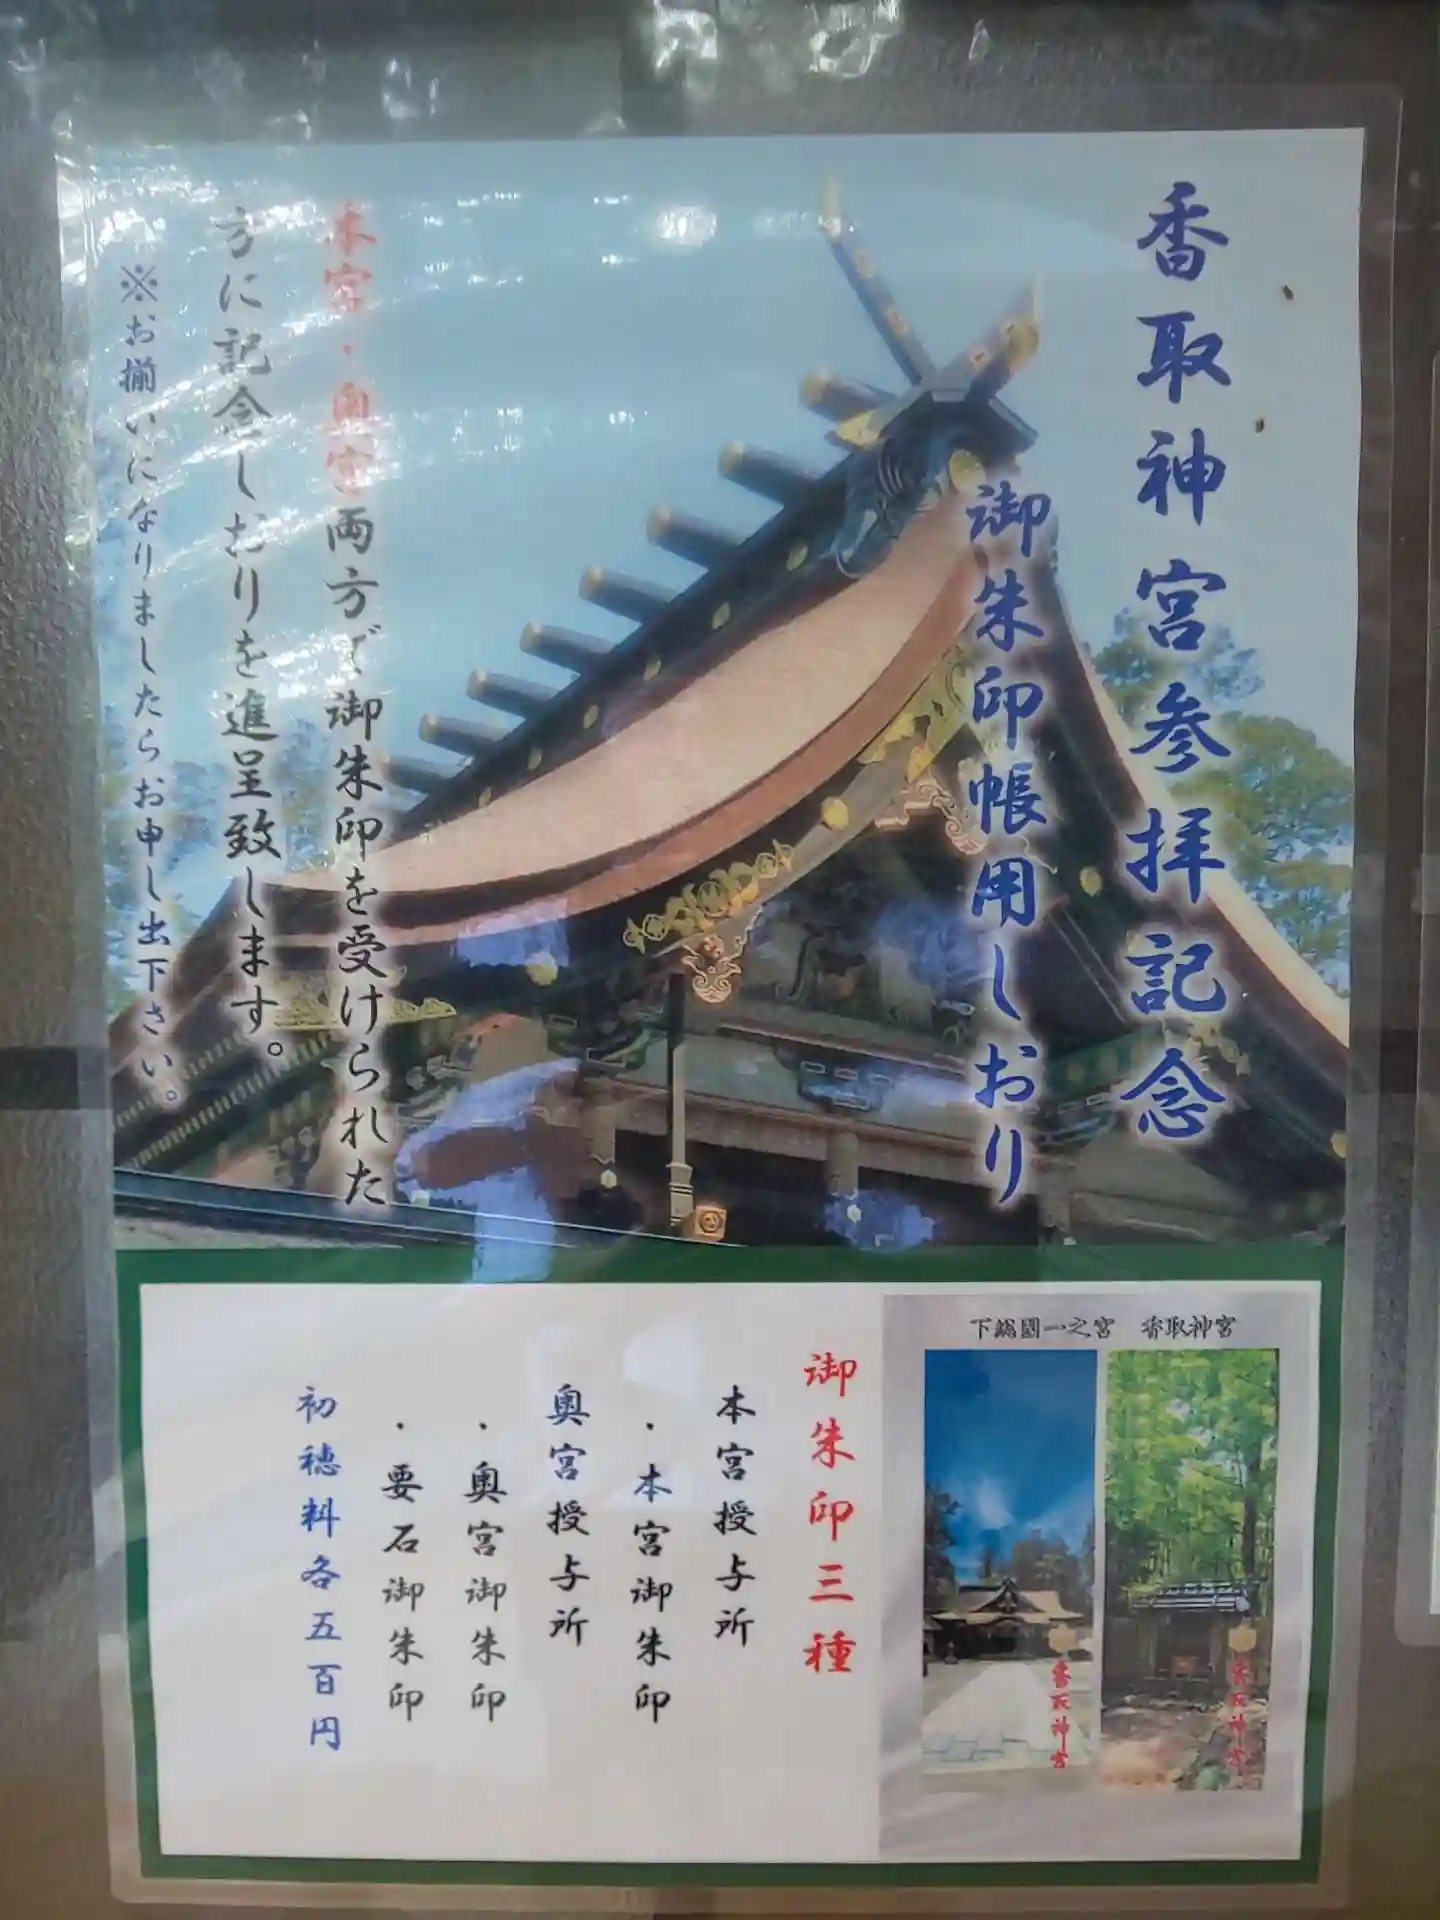 香取神宮参拝記念
御朱印帳用しおり
本宮・奥宮両方で御朱印を受けられた
方に記念しおりを進呈致します。
※お揃いになりましたらお申し出下さい。
下総國一之宮　香取神宮
香取神宮
香取神宮
御朱印三種
本宮授与所
・本宮御朱印
奥宮授与所
・奥宮御朱印
・要石御朱印
初穂料各五百円